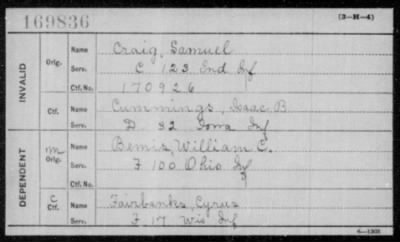 169836
(3-H-4)
INVALID
Orig.
Name Craig, Samuel
Serv. C 123 Ind Inf
Ctf. No. 170926
Ctf.
Name Cummings, Isaac B
Serv. D 32 Iowa Inf
DEPENDENT
M
Orig.
Name Bemis, William C.
Serv. F 100 Ohio Inf
Ctf. No.
C
Ctf.
Name Fairbanks, Cyrus
Serv. F 17 Wis Inf